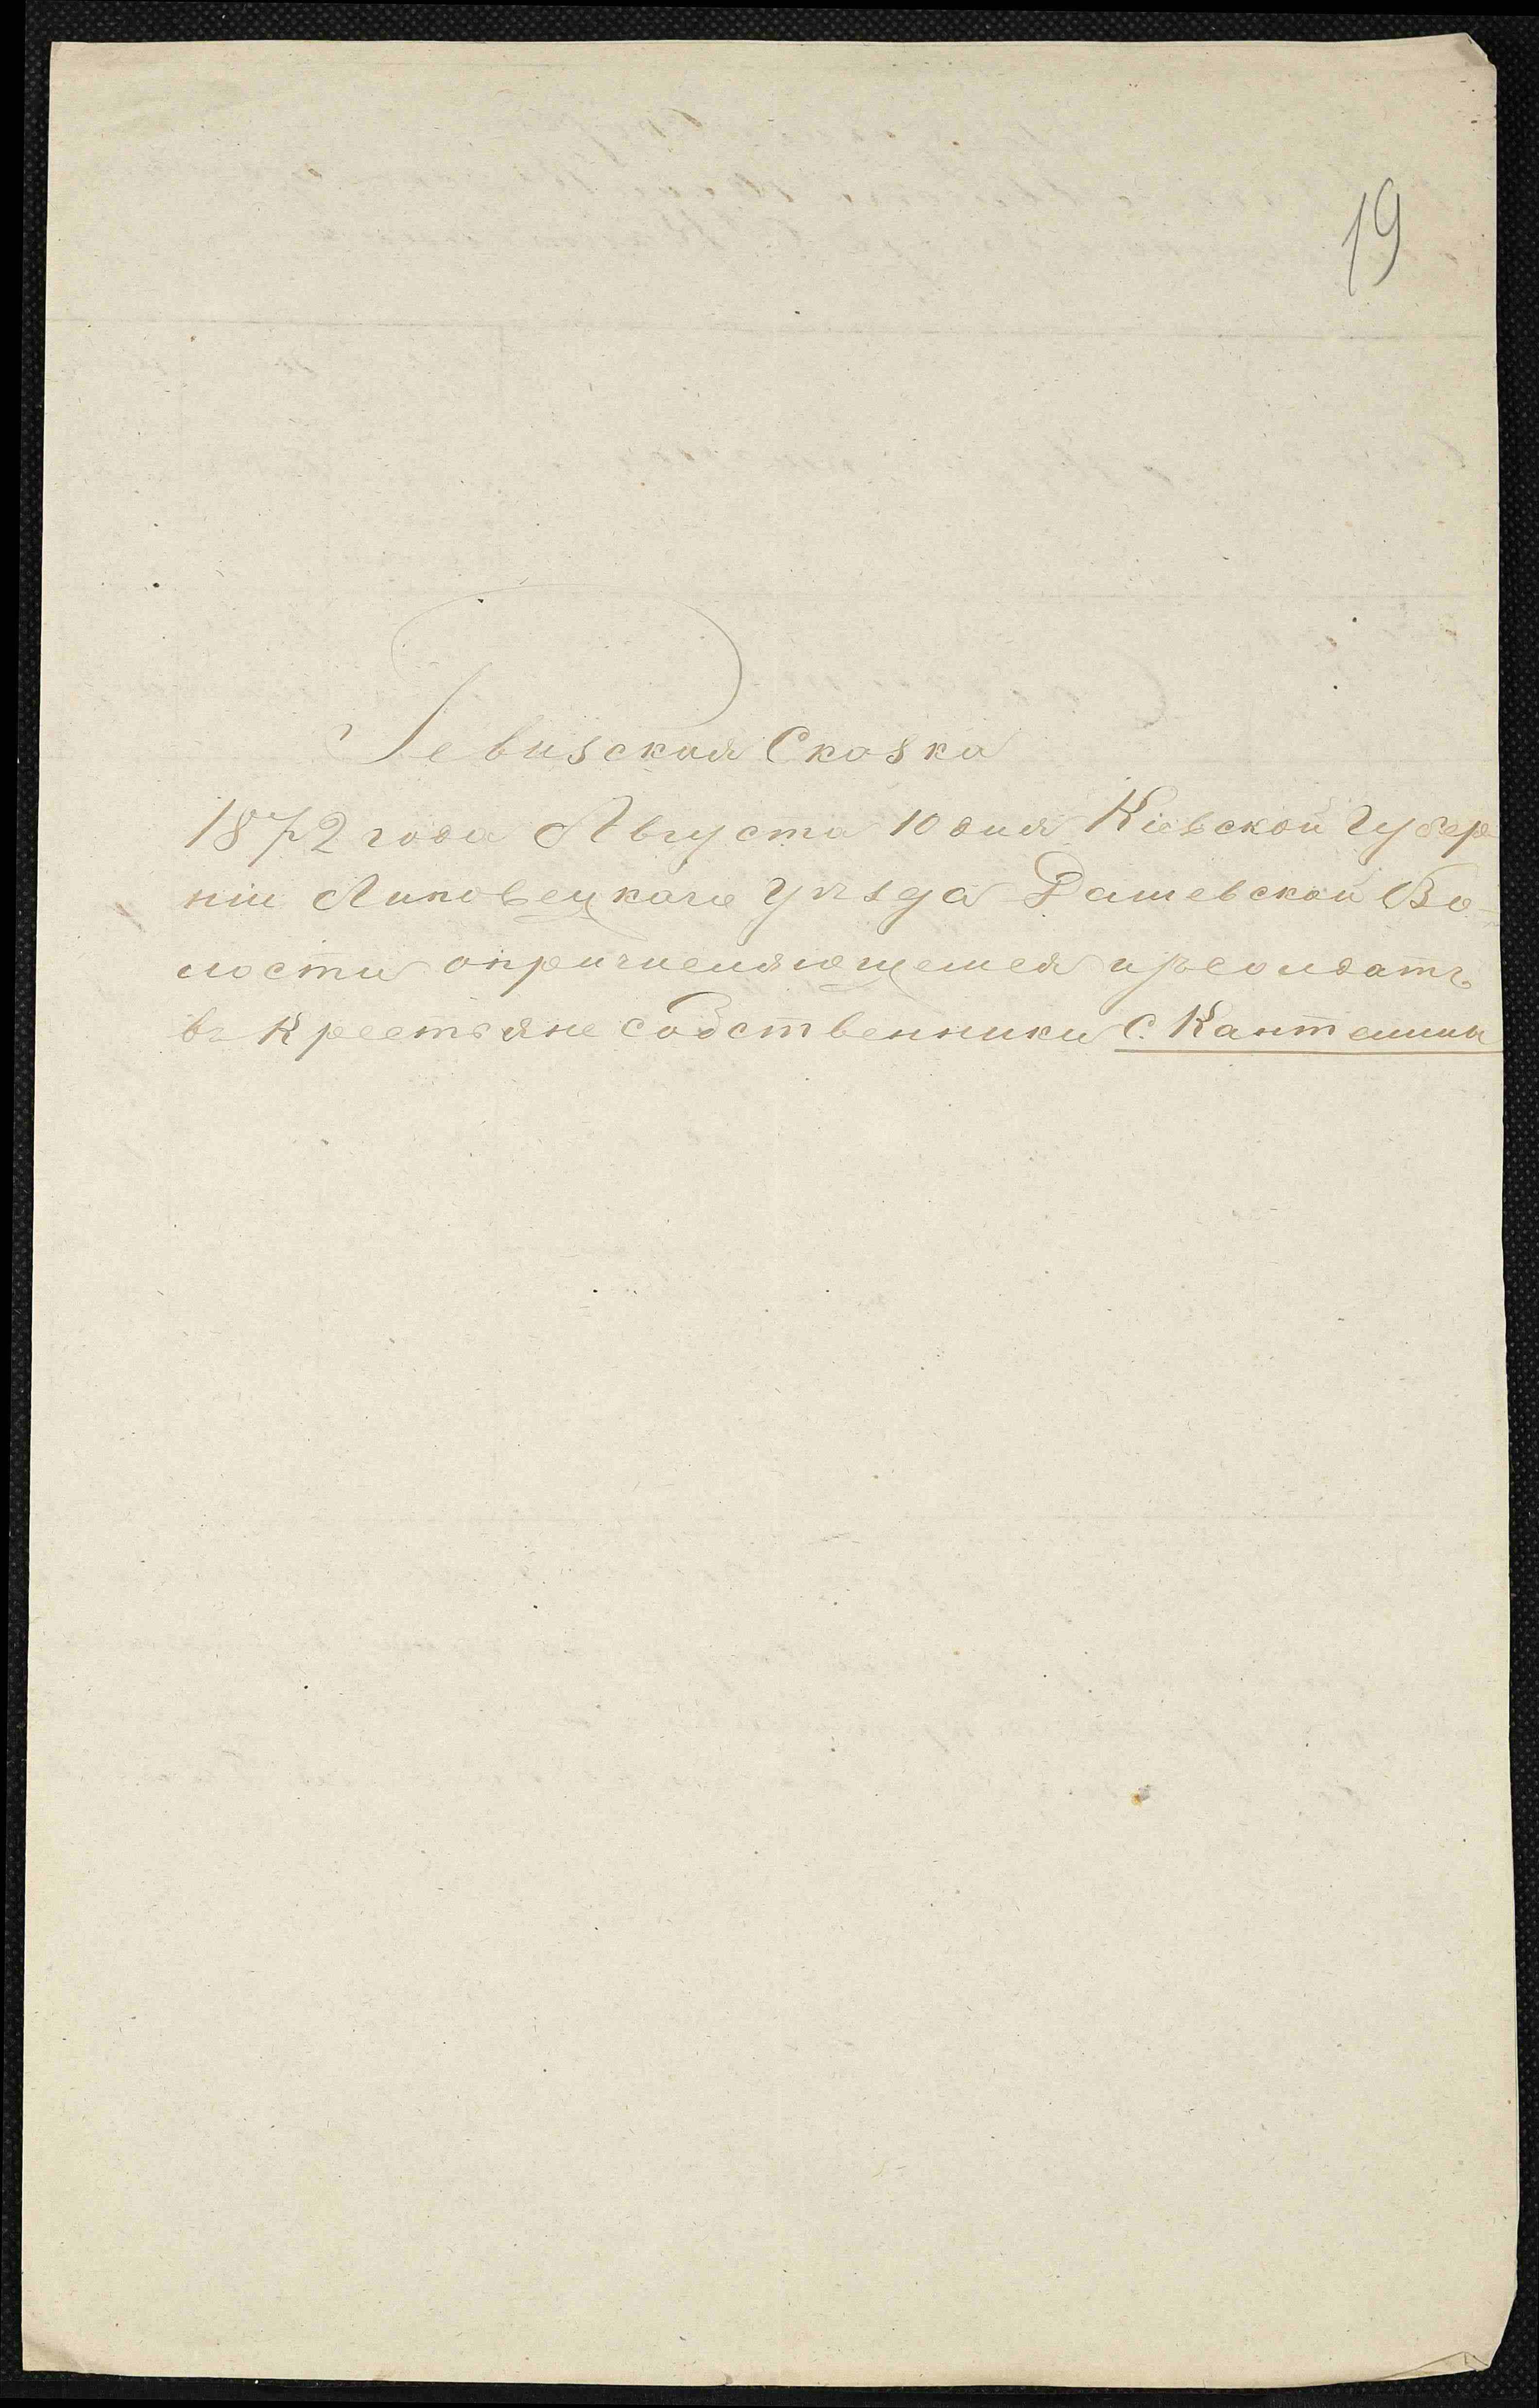 19
Ревизская Сказка
1872 года Августа 10 дня Кіевской Губер
ніи Липовецкаго Уѣзда Дашевской Во-
лости опричиеляющемся изъ солдатъ
въ Крестьяне собственники С. Кантелины